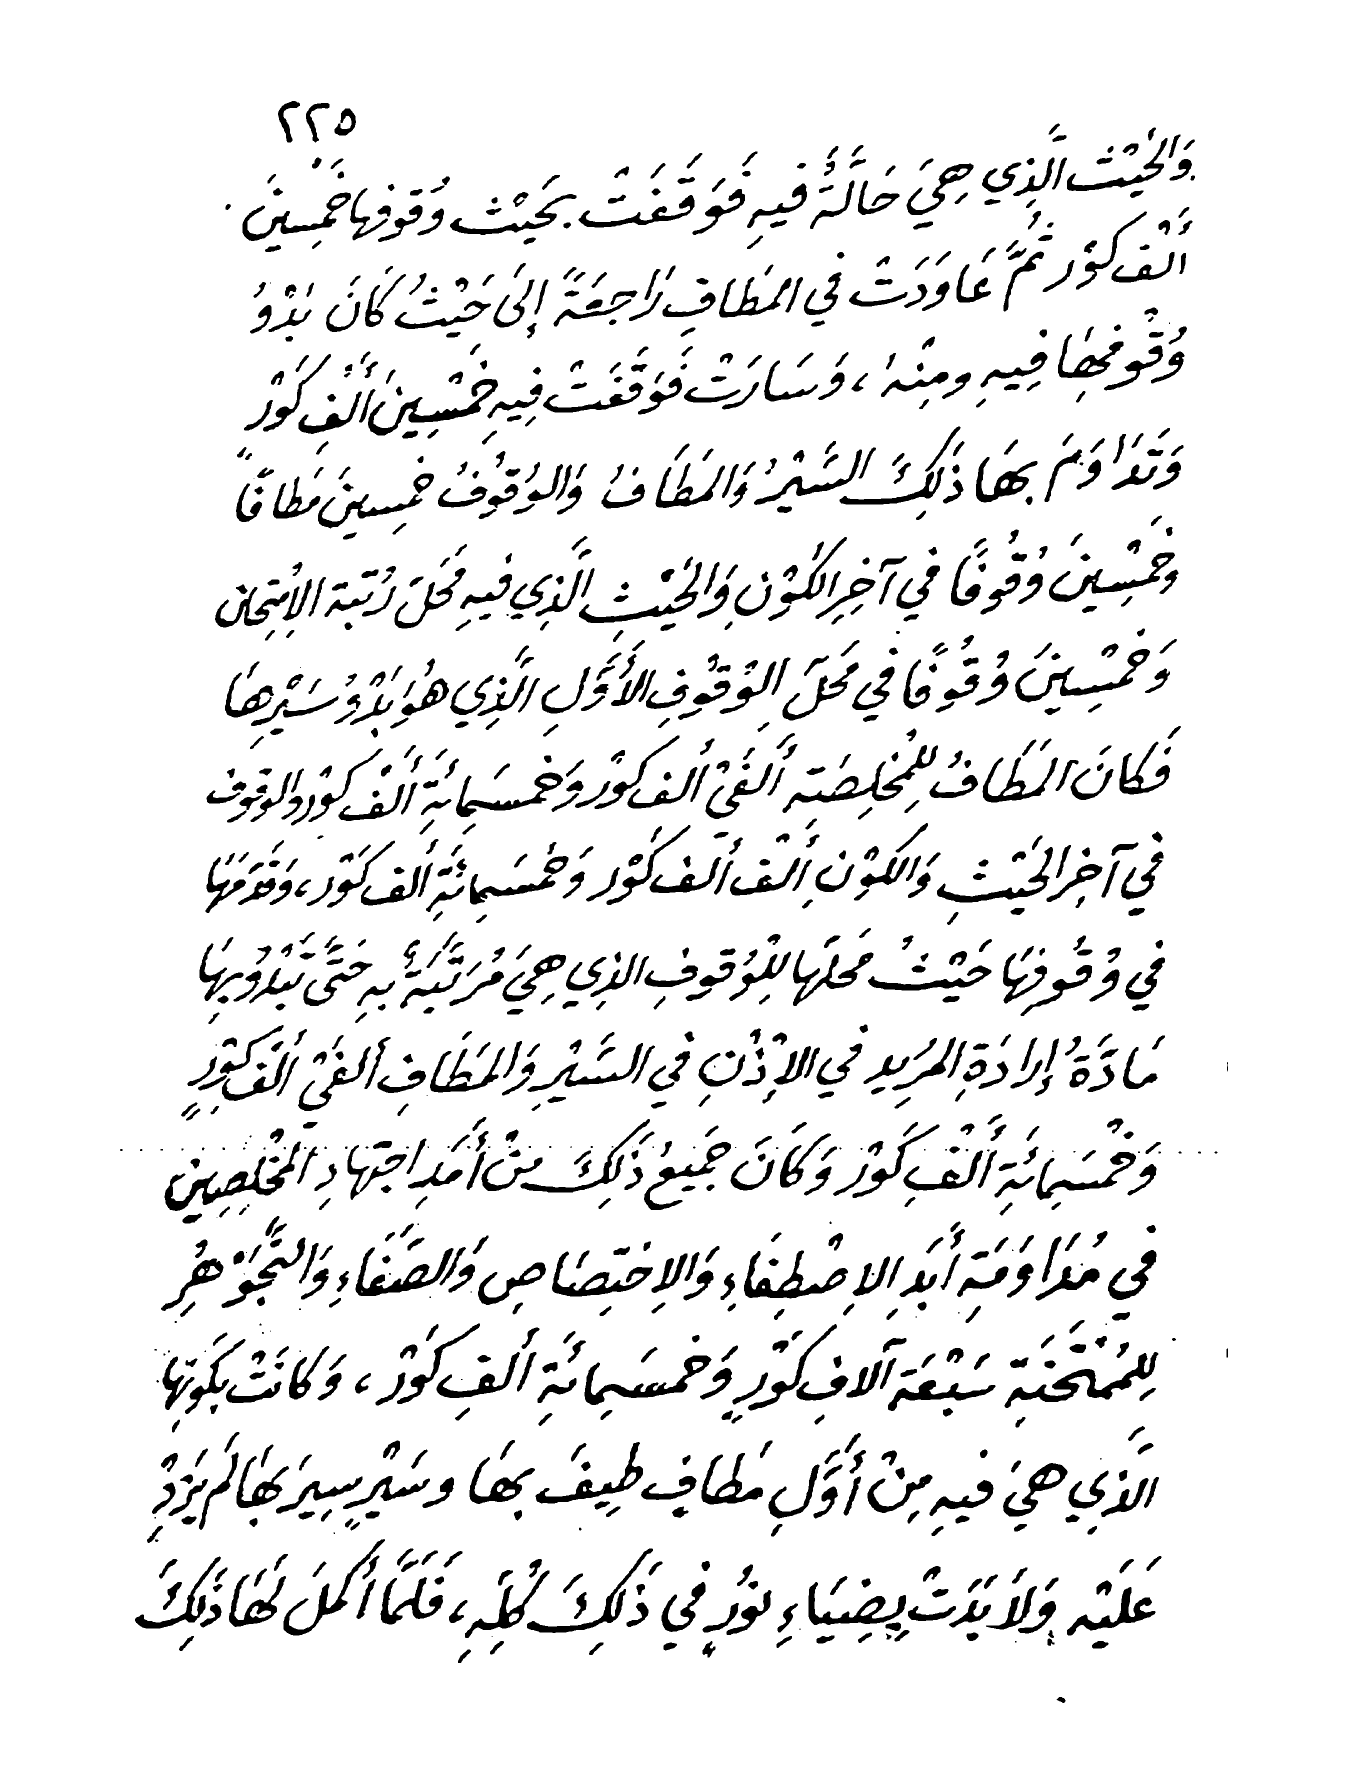 ٢٢٥
وَالحَيْث الَّذِي هِيَ حَالَّةٌ فيهِ فَوَقَفَتْ بحَيْث وُقوفها خَمسِينَ
أَلْف كَوْر ثُمَّ عَاوَدَتْ في المَطَافِ رَاجعَةً إلَى حَيْثُ كَانَ بَدْوُ
وُقُوفِهَا فِيهِ ومِنْهُ ، وَسَارَتْ فَوَقَفَتْ فِيهِ خَمْسِينَ أَلْفِ كَوْرٍ
وَتَدَاوَمَ بهَا ذَلِكَ السَّيْرُ وَالمَطَافُ وَالوُقُوفُ خمسِينَ مَطَافًا
وخَمْسِينَ وُقُوفًا في آخِرِ الكَوْنِ وَالحَيْثِ الَّذِي فيهِ مَحَلّ رُتبَة الاِمْتِحَان
وَخَمْسِينَ وُقُوفًا في مَحَلّ الوُقُوفِ الأَوَّلِ الَّذِي هُوَ بَدْوُ سَيْرِهَا
فَكَانَ المَطَافُ لِلمُخلِصَةِ أَلْفَيْ أَلف كَوْر وَخمسَمِائَةِ أَلْف كَوْر والوقوف
في آخِرِ الحَيْثِ وَالكَوْنِ أَلْف أَلف كَوْر وَخَمْسَمِائَةِ أَلف كَوْر، وَقَدَمَهَا
في وُقُوفِهَا حَيْثُ مَحَلّهَا لِلْوُقوفِ الذِي هِيَ مُرَتَّبَةٌ بهِ حَتَّى تَبْدُو بِهَا
مَادَّةُ إرَادَةِ المُرِيدِ في الإِذْنِ في السَّيْرِ وَالمَطَافِ أَلفَيْ أَلْف كَوْرٍ
وَخَمْسَمِائَةِ أَلْفِ كَوْر وَكَانَ جَمِيعُ ذَلِكَ مِنْ أَمَدِ اجتهادِ المُخْلِصِين
في مُدَاوَمَةِ أَبَدِ الاِصْطِفَاءِ وَالاِختِصَاصِ وَالصَّفَاءِ وَالتَّجَوْهُرِ
لِلمُمْتَحَنَةِ سَبْعَة آلافِ كَوْرٍ وَخمسَمِائَةِ أَلفِ كَوْر ، وَكَانَتْ بِكَوْنِهَا
الَّذِي هيَ فيهِ مِنْ أَوَّلِ مَطَافٍ طِيفَ بِهَا وسَيْرٍ سِيرَ بهَا لَم يَزِدْ
عَلَيْه وَلاَ بَدَتْ بِضِيَاءِ نُورٍ في ذَلِكَ كُلِّهِ، فَلَمَّا أَكمَلَ لَهَا ذَلِكَ